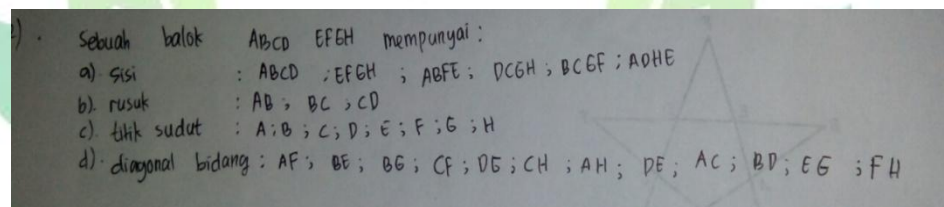 Sebuah balok ABCD EFGH mempunyai :
a). sisi : ABCD ; EFGH ; ABFE ; DCGH ; BCGF ; ADHE
b). rusuk : AB ; BC ; CD
c). titik sudut : A ; B ; C ; D ; E ; F ; G ; H
d). diagonal bidang : AF ; BE ; BG ; CF ; DG ; CH ; AH ; DE ; AC ; BD ; EG ; FH